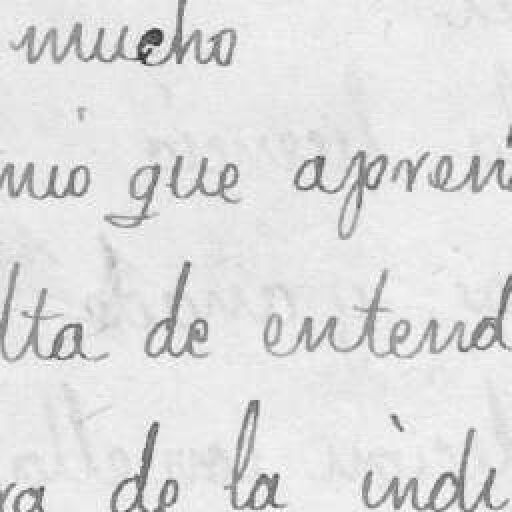 mucho
mio que apren
lta de entend
ra de la indi